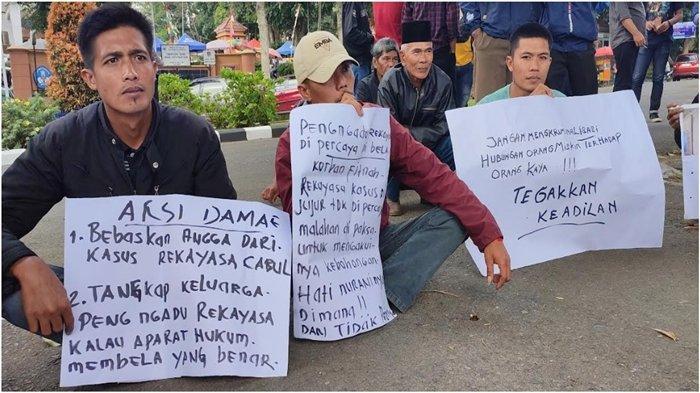 AKSI DAMAE
1. BEBASKAN ANGGA DARI
KASUS REKAYASA CABUL
2. TANGKAP KELUARGA
PENG NGADU REKAYASA
KALAU APARAT HUKUM
MEMBELA YANG BENAR.
PENGNGADU REKAYASA
DI PERCAYA DI BELA
KORBAN FITNAH
REKAYASA KASUS DI
JUJUR TDK DI PERCAYA
MALAHAN DI PAKSA
UNTUK MENGAKUI
NYA KEBOHONGAN
HATI NURANI NYA
DIMANA !!
DAN TIDAK
JANGAN MENGKRIMINALISASI
HUBUNGAN ORANG MISKIN TERHADAP
ORANG KAYA !!!
TEGAKKAN
KEADILAN